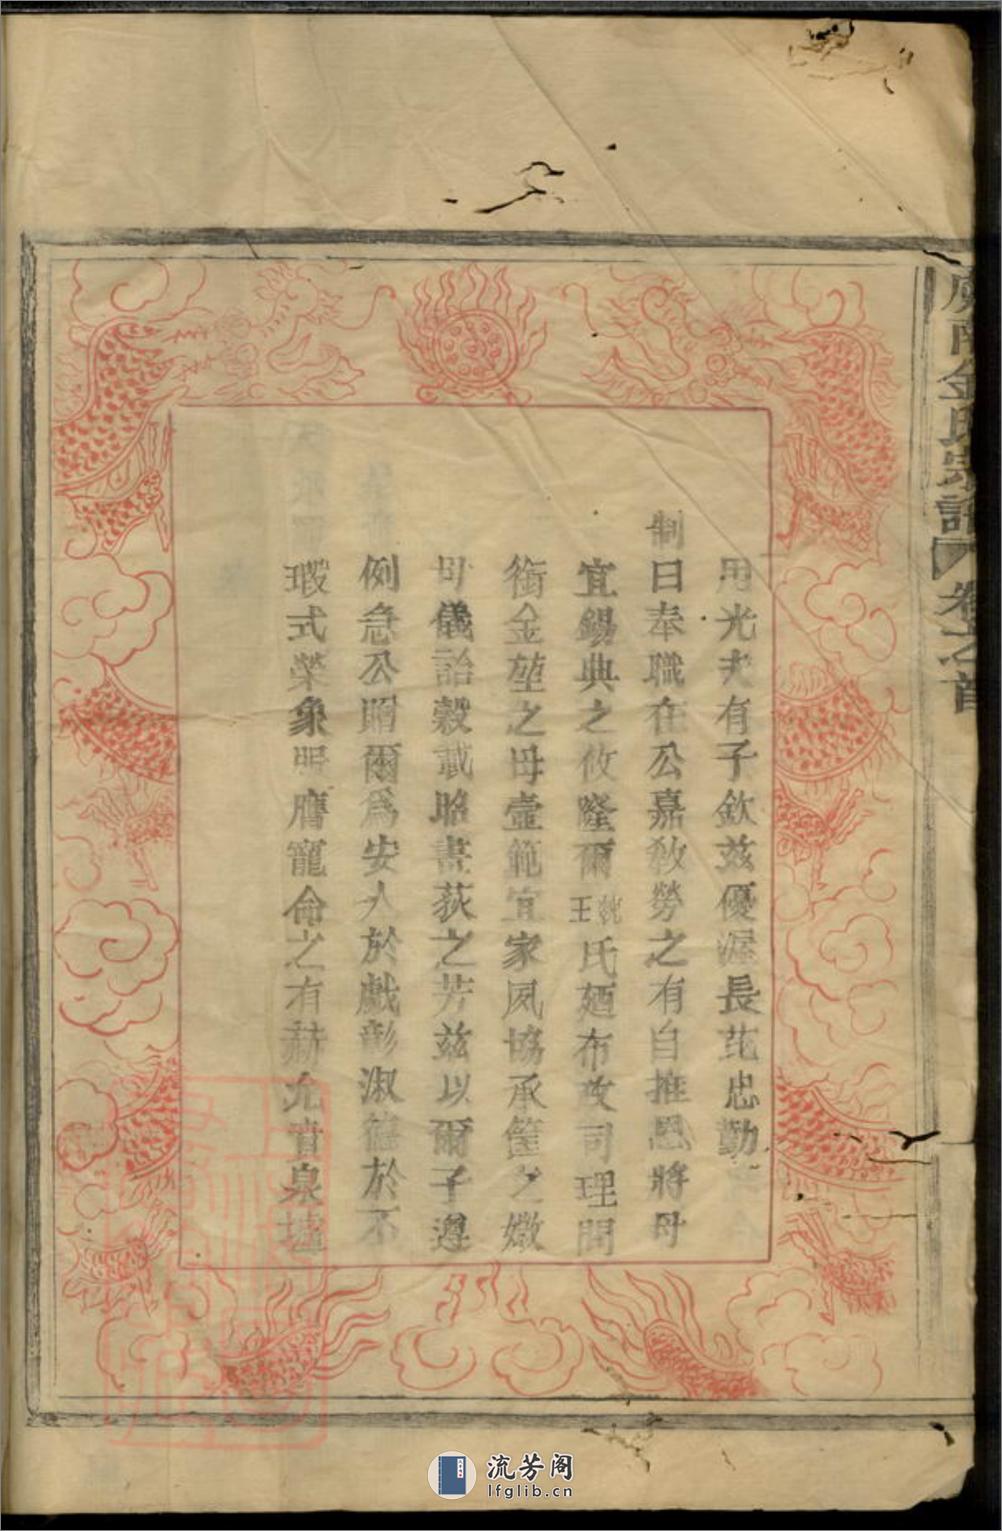 金氏宗譜 卷之首
用光夫有子欽兹優渥長茂忠勤
制曰奉職在公嘉敘勞之有自推恩將母
宜錫典之攸隆爾王氏廼布政司理問
銜金堃之母壼範宜家夙協承筐之媺
母儀詒穀載昭畫荻之芳兹以爾子遵
例急公贈爾爲安人於戲彰淑德於不
瑕式榮象服膺寵命之有赫允賁泉壚
流芳阁
lfglib.cn